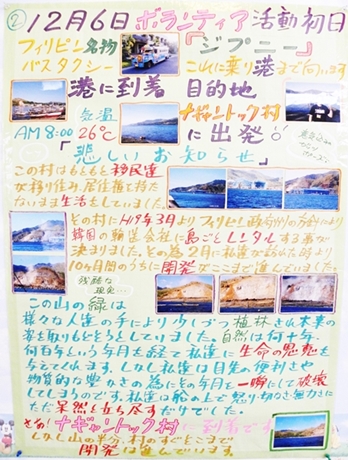 ② 12月6日 ボランティア活動初日
フィリピン名物 「ジプニー」
バスタクシー こ山に乗り港まで向います
港に到着 目的地
気温 ナギャントック村
AM 8:00 26℃ に出発!!
「悲しいお知らせ」
この村はもともと移民達
が移り住み、居住権も持た
ないまま生活をしていました。
その村にH19年3月よりフィリピン政府の方針により
韓国の輸送会社に島ごとレンタルする事が
決まりました。その為2月に私達が訪れた時より
10ヶ月間のうちに開発がここまで進んでいました。
残酷な
現実…
この山の緑は
様々な人達の手により少しづつ植林され本来の
姿を取りもどそうとしていました。自然は何十年、
何百年という年月を経て私達に生命の恩恵を
与えてくれます。しかし私達は目先の便利さや
物質的な豊かさの為にその年月を一瞬にして破壊
してしまうのです。私達は船の上で怒り、切なさ、無力さに
ただ呆然と立ち尽すだけでした。
さあ!ナギャントック村に到着です
しかし山の半分、村のすぐそこまで
開発は進んでいました。